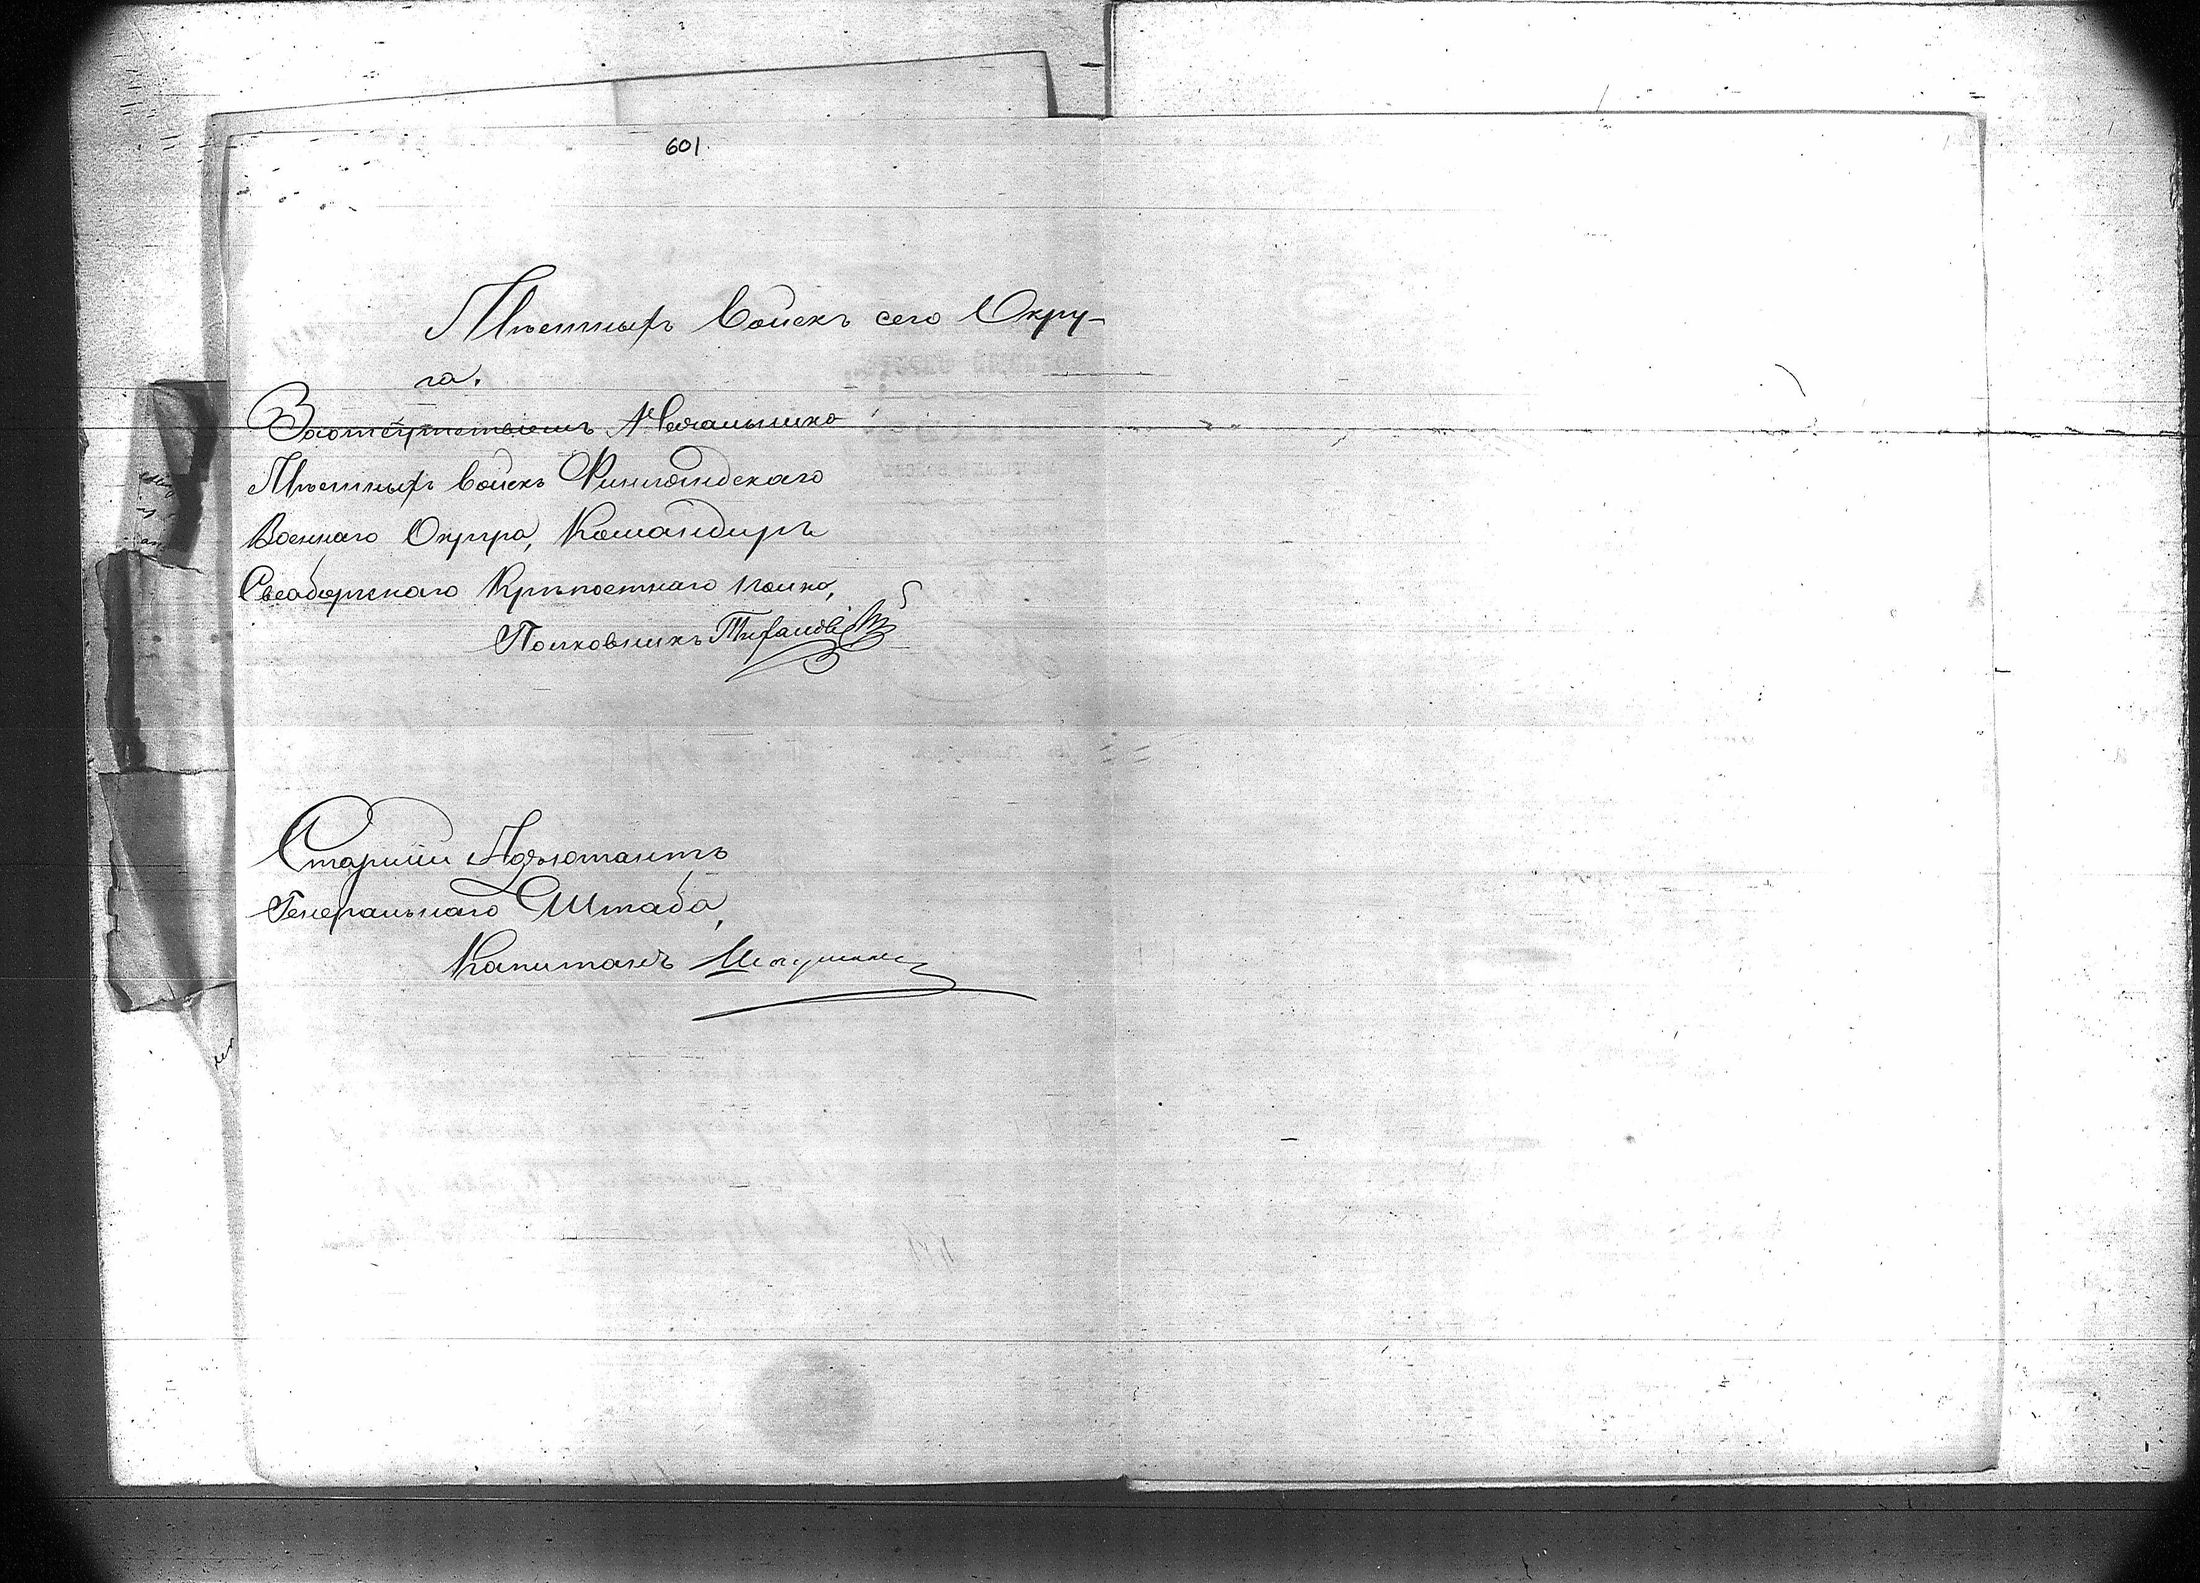 601.
Мѣстныхъ Войскъ сего Окру-
га.
За отсутствіемъ Начальника
Мѣстныхъ Войскъ Финляндскаго
Военнаго Округа, Командиръ
Свеаборгскаго Крѣпостнаго полка,
Полковникъ
Старшій Адъютантъ
Генеральнаго Штаба,
Капитанъ